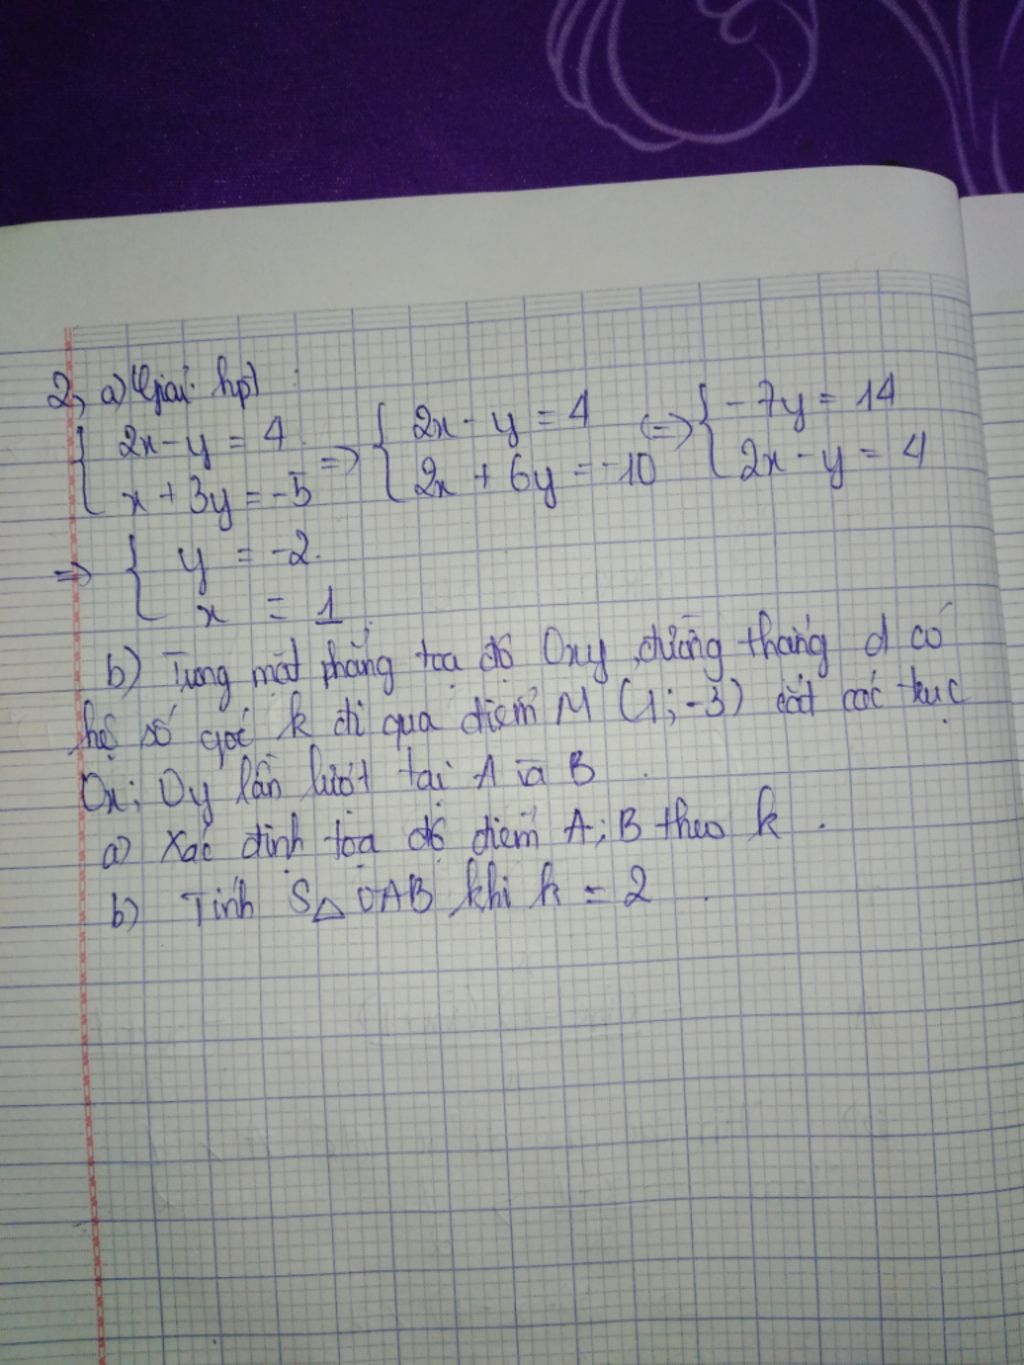 2, a) Giải hpt :
{ 2x - y = 4 => { 2x - y = 4 <=> { - 7y = 14
x + 3y = -5 2x + 6y = -10 2x - y = 4
=> { y = -2.
x = 1.
b) Trong mặt phẳng tọa độ Oxy, đường thẳng d có
hệ số góc k đi qua điểm M (1; -3) cắt các trục
Ox; Oy lần lượt tại A và B .
a) Xác định tọa độ điểm A; B theo k .
b) Tính S△ OAB khi k = 2 .